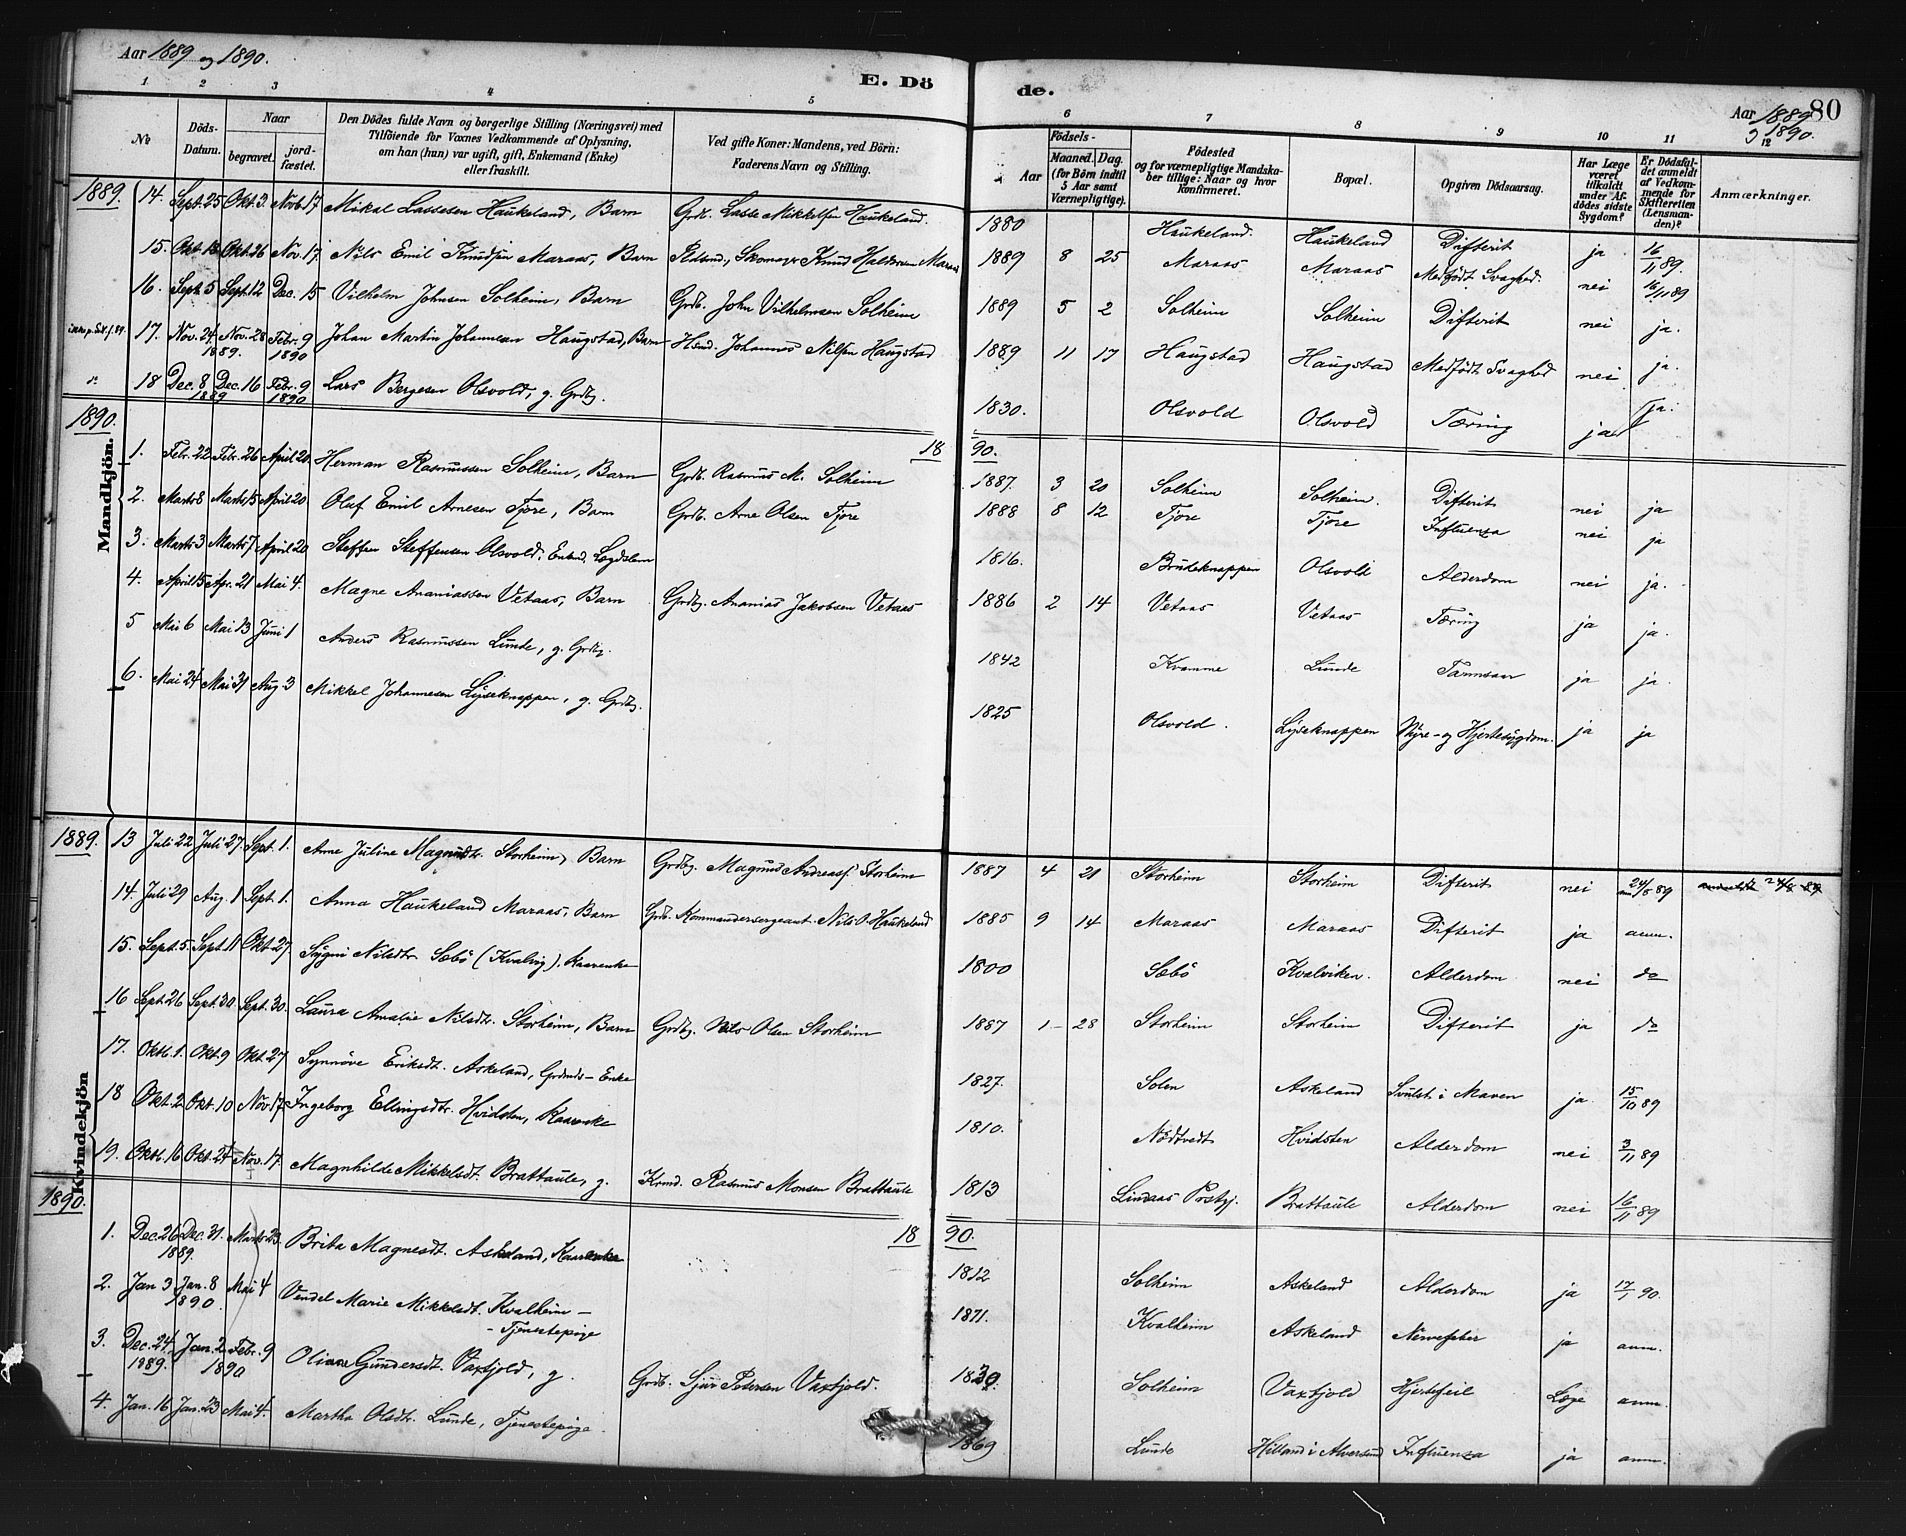 Aar 1889 og 1890.
E. Dö
de.
Aar 1889 80
1890.
1 2 3 4 5 6 7 8 9 10 11 12
No Döds-Datum. Naar begravet. jord-fæstet. Den Dödes fulde Navn og borgerlige Stilling (Næringsvei) med Tilföiende for Voxnes Vedkommende af Oplysning, om han (hun) var ugift, gift, Enkemand (Enke) eller fraskilt. Ved gifte Koner: Mandens, ved Börn: Faderens Navn og Stilling. Födsels- Aar Maaned. Dag. (for Börn indtil 5 Aar samt Værnepligtige). Födested og for værnepligtige Mandskaber tillige: Naar og hvor konfirmeret. Bopæl. Opgiven Dödsaarsag. Har Læge været tilkaldt under Afdödes sidste Sygdom? Er Dödsfaldet anmeldt af Vedkommende for Skifteretten (Lensmanden)? Anmærkninger.
Mandkjön.
1889. 14. Sept. 25 Okt. 3. Novb. 17 Mikal Lassesen Haukeland, Barn Grdb. Lasse Mikkelsen Haukeland. 1880 Haukeland. Haukeland Difterit ja 16/11 89.
15. Okt. 18 Okt. 26 Nov. 17. Nils Emil Knudsen Maraas, Barn Skomager Knud Haldorsen Maraas 1889 8 25 Maraas Maraas Medfødt Svaghed. nei 16/11 89
16. Sept. 5 Sept. 12 Dec. 15 Vilhelm Johnsen Solheim, Barn Grdb. John Vilhelmsen Solheim 1889 5 2 Solheim Solheim Difterit nei ja.
17. Nov. 24 Nov. 28 1889. Febr. 9 1890 Johan Martin Johannesen Haugstad, Barn Hsmd. Johannes Nilsen Haugstad 1889 11 17 Haugstad Haugstad Medfödt Svaghed nei ja.
18 Dec. 8 Dec. 16 1889 Febr. 9 1890 Lars Bergesen Olsvold, g. Grdbg. 1830. Olsvold Olsvold Tæring ja ja.
1890. 18 90.
1. Febr. 22 Febr. 26 April 20 Herman Rasmussen Solheim, Barn Grdb. Rasmus M. Solheim 1887. 3 20 Solheim Solheim. Difterit nei ja
2. Marts 8 Marts 15 April 20 Olaf Emil Arnesen Tjore, Barn Grdb. Arne Olsen Tjore 1888 8 12 Tjore Tjore Influenza nei ja
3. Marts 3 Marts 7 April 20 Steffen Steffensen Olsvold, Enkmd. Lægdslem 1816. Brudeknappen Olsvold Alderdom nei ja.
4. April 15 Apr. 21 Mai 4. Magne Ananiassen Vetaas, Barn Grdbg. Ananias Jakobsen Vetaas 1886 2 14 Vetaas Vetaas Tæring ja ja.
5 Mai 6 Mai 13 Juni 1 Anders Rasmussen Lunde, g. Grdbg. 1842 Kvamme Lunde ja ja.
6. Mai 24 Mai 31 Aug 3 Mikkel Johannesen Lyseknappen, g. Grdbg. 1825 Olsvold. Lyseknappen Nyre- og Hjertesygdom. ja ja
Kvindekjön
1889. 13 Juli 22 Juli 27. Sept. 1. Anne Juline Magnusdtr. Storheim, Barn Grdbg. Magnus Andreass. Storheim 1887 4 21 Storheim Storheim Difterit nei anm 24/8 89 24/8 89
14. Juli 29 Aug. 1 Sept. 1. Anna Haukeland Maraas, Barn Grdb. Kommandersergeant Nils O. Haukeland 1885 9 14 Maraas Maraas Difterit ja anm.
15. Sept. 5. Sept. 11 Okt. 27. Nilsdtr. Sæbö (Kvalvig), Kaarenke 1800 Sæbö Kvalviken. Alderdom nei do
16 Sept. 26 Sept. 30. Sept. 30. Laura Amalie Nilsdtr. Storheim, Barn Grdbg. Nils Olsen Storheim 1887 1 28 Storheim Storheim Difterit ja do
17. Oktb. 1. Okt. 9 Okt. 27 Synnöve Eriksdt. Askeland, Grdmds-Enke 1827. Solen Askeland Svulst i Maven ja 15/10 89
18 Okt. 2 Okt. 10 Nov. 17 Ingeborg Ellingsdtr. Hvidsten, Kaarenke 1810. Nödtvedt Hvidsten Alderdom nei 3/11 89
19. Oktb. 16 Okt. 24 Nov. 17. Magnhilde Mikkelsdt. Brattaule, g. Krmd. Rasmus Monsen Brattaule 1813 Lindaas Prstgj. Brattaule Alderdom nei 16/11 89
1890. 18 90.
1. Dec. 26 Dec. 31. 1889. Marts 23. Brita Magnesdt. Askeland, Kaarenke 1812 Solheim Askeland Alderdom ja 17/1 90.
2. Jan 3 Jan. 8 1890. Mai 4 Vendel Marie Mikkelsdt. Kvalheim - Tjenestepige 1871. Kvalheim Askeland Nervefeber ja anm.
3. Dec. 24. 1889. Jan. 2 1890 Febr. 9 Oliane Gundersdt. Vaxtjold, g. Grdb. Sjur Petersen Vaxtjold. 1830. Solheim Vaxtjold Hjertefeil Læge anm.
4. Jan. 16 Jan. 23 Mai 4. Martha Olsdtr. Lunde, Tjenestepige. 1869 Lunde Hilland i Alversund Influenza ja anm.